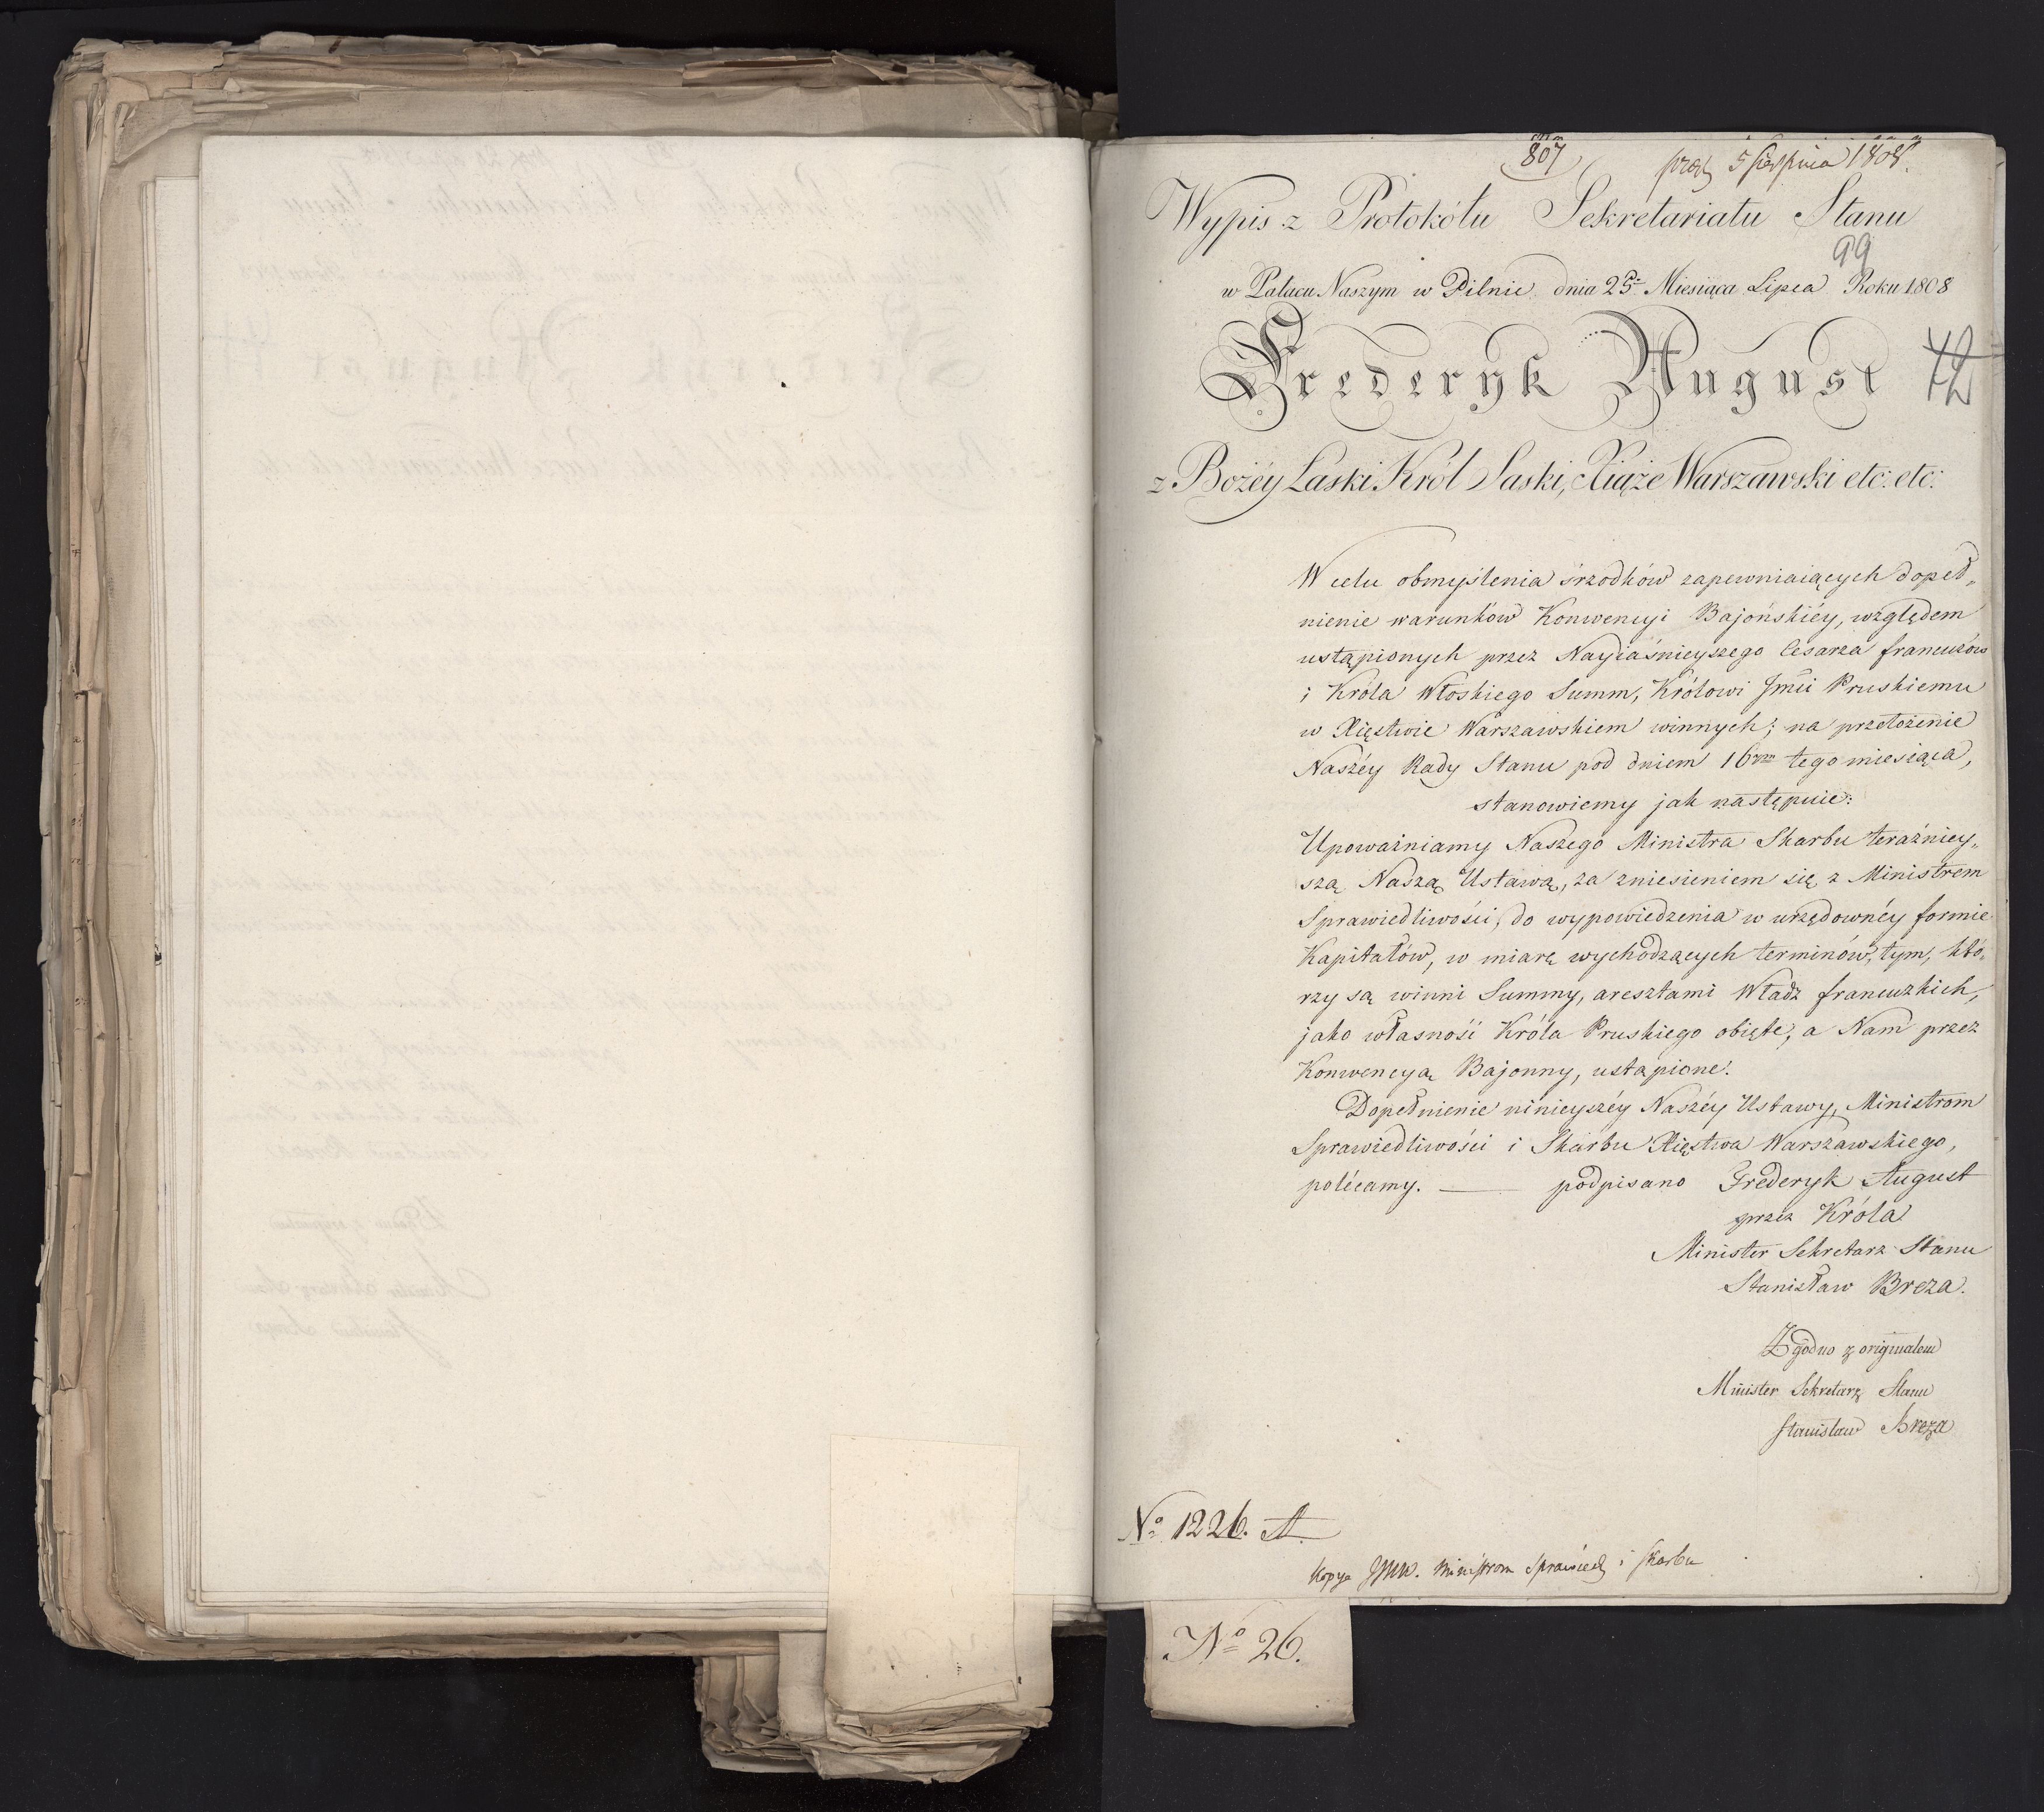 807
5 Sierpnia 1808.
Wypis z Protokółu Sekretariatu Stanu
99
w Pałacu Naszym w Pilnic dnia 25. Miesiąca Lipca Roku 1808
Frederyk August
z Bożéy Łaski Król Saski, Xiąże Warszawski etc: etc:
W celu obmyślenia śrzodków zapewniaiących dopeł„
nienie warunków Konwencyi Bajońskiéy, względem
ustąpionych przez Nayiaśnieyszego Cesarza francuzów
i Króla Włoskiego Summ, Królowi Jmći Pruskiemu
w Xięstwie Warszawskiem winnych; na przełożenie
Naszéy Rady Stanu pod dniem 16m tego miesiąca,
stanowiemy jak następuie:
Upoważniamy Naszego Ministra Skarbu teraźniey„
szą Naszą Ustawą, za zniesieniem się z Ministrem
Sprawiedliwości, do wypowiedzenia w urzędownéy formie
Kapitałów, w miarę wychodzących terminów, tym, któ„
rzy są winni Summy, aresztami Władz francuzkich,
jako własnośi Króla Pruskiego obięte, a Nam przez
Konwencyą Bajonny, ustąpione.
Dopełnienie ninieyszéy Naszéy Ustawy, Ministrom
Sprawiedliwości i Skarbu Xięstwa Warszawskiego,
polécamy. — podpisano Frederyk August
przez Króla
Minister Sekretarz Stanu
Stanisław Breza.
Zgodno z originałem
Minister Sekretarz Stanu
Stanisław Breza
No 1226. A.
Kopya JMW. Ministrom Sprawied i Skarbu
No 26.